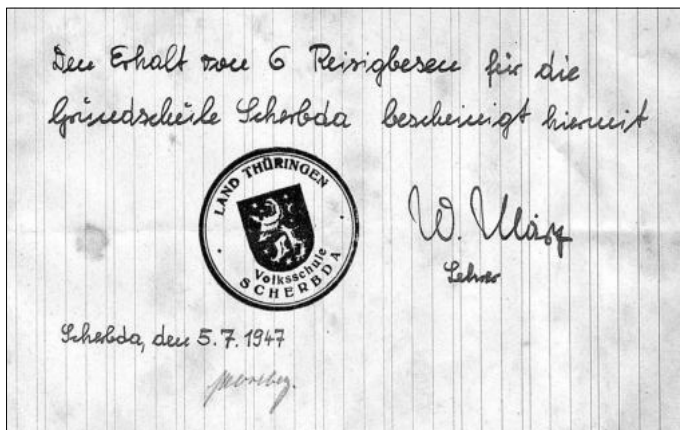 Den Erhalt von 6 Reisigbesen für die
Grundschule Scherbda bescheinigt hiermit
LAND THÜRINGEN
Volksschule
SCHERBDA
W. März
Lehrer
Scherbda, den 5.7.1947